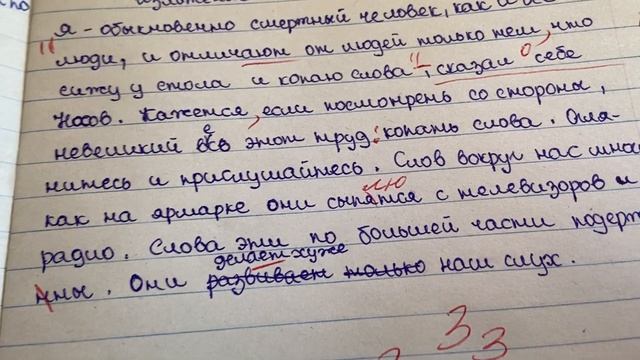 "я - обыкновенно смертный человек, как и
люди, и отличают от людей только тем, что
сижу у стола и копаю слова", сказал о себе
Носов. Кажется, если посмотреть со стороны,
невеликий весь этот труд: копать слова. Огля-
нитесь и прислушайтесь. Слов вокруг нас мно
как на ярмарке они сыпятся с телевизоров и
радио. Слова эти по большей части
делает хуже
ны. Они развивает только наш слух.
3 3